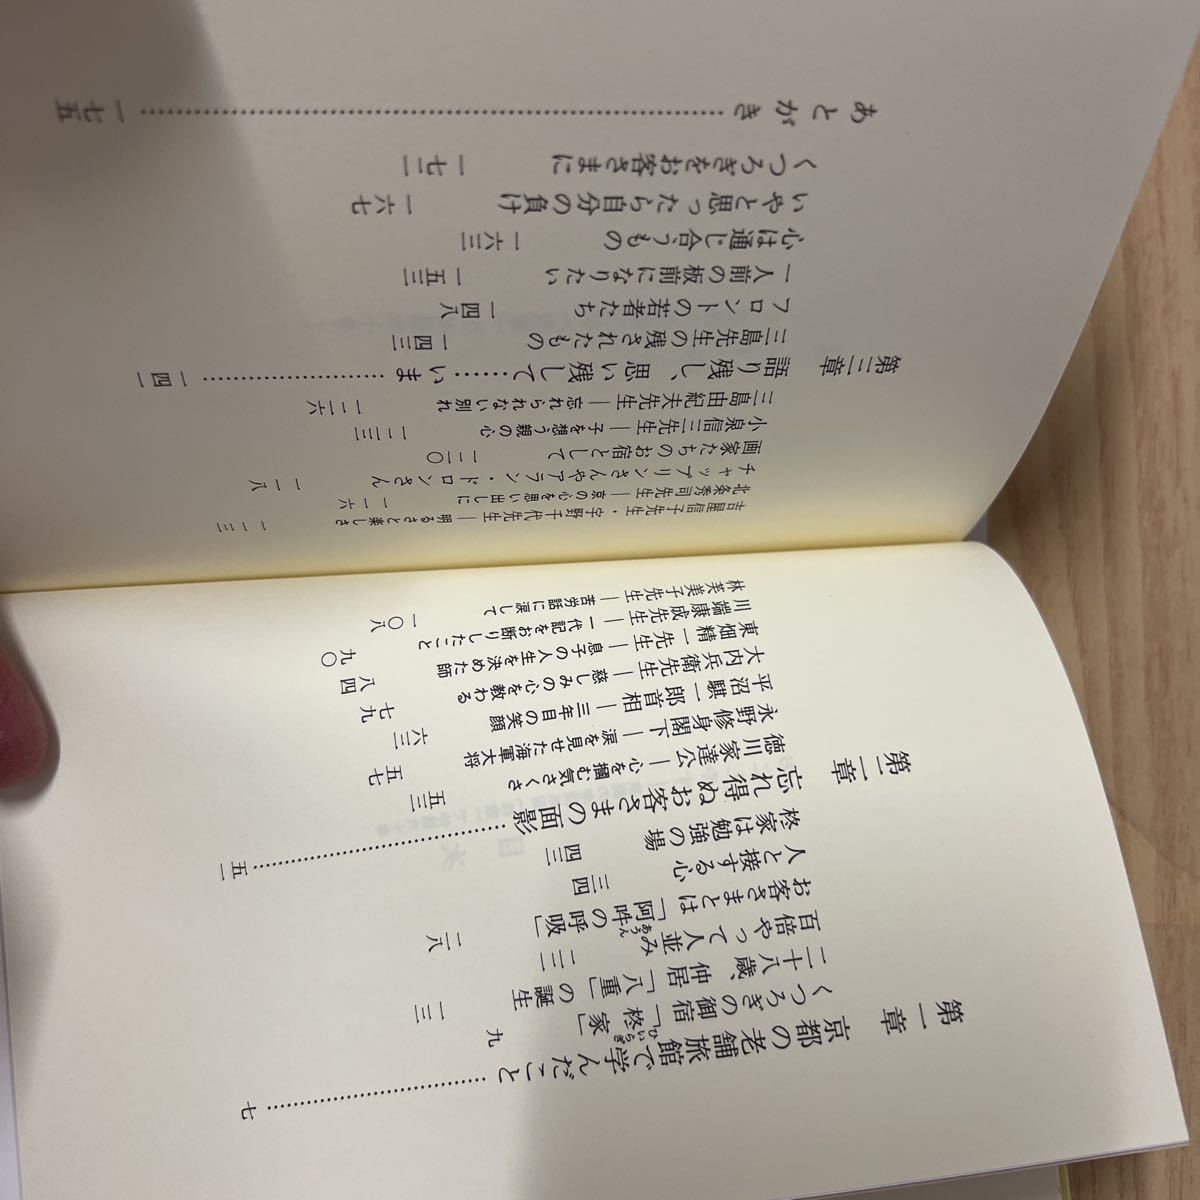 第一章　京都の老舗旅館で学んだこと……七
くつろぎの御宿「柊家」　九
ひいらぎ
二十八歳、仲居「八重」の誕生　一三
百倍やって人並み　二二
お客さまとは「阿吽の呼吸」　二八
あうん
人と接する心　三四
柊家は勉強の場　四三
第二章　忘れ得ぬお客さまの面影……五一
徳川家達公―心を掴む気さくさ　五三
永野修身閣下―涙を見せた海軍大将　五七
平沼騏一郎首相―三年目の笑顔　六三
大内兵衛先生―慈しみの心を教わる　七九
東畑精一先生―息子の人生を決めた師　八四
川端康成先生―一代記をお断りしたこと　九〇
林芙美子先生―苦労話に涙して　一〇八
吉屋信子先生・宇野千代先生―明るさと楽しさ　一一三
北条秀司先生―京の心を思い出しに　一一六
チャップリンさんやアラン・ドロンさん　一一八
画家たちのお宿として　一二〇
小泉信三先生―子を想う親の心　一二三
三島由紀夫先生―忘れられない別れ　一二六
第三章　語り残し、思い残して……いま……一四一
三島先生の残されたもの　一四三
フロントの若者たち　一四八
一人前の板前になりたい　一五三
心は通じ合うもの　一六三
いやと思ったら自分の負け　一六七
くつろぎをお客さまに　一七二
あとがき……一七五